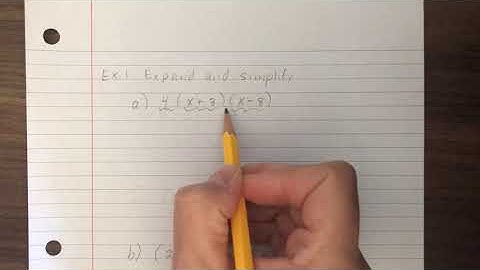 Ex.1 Expand and simplify
a) 4 (x + 3) (x - 8)
b) (2